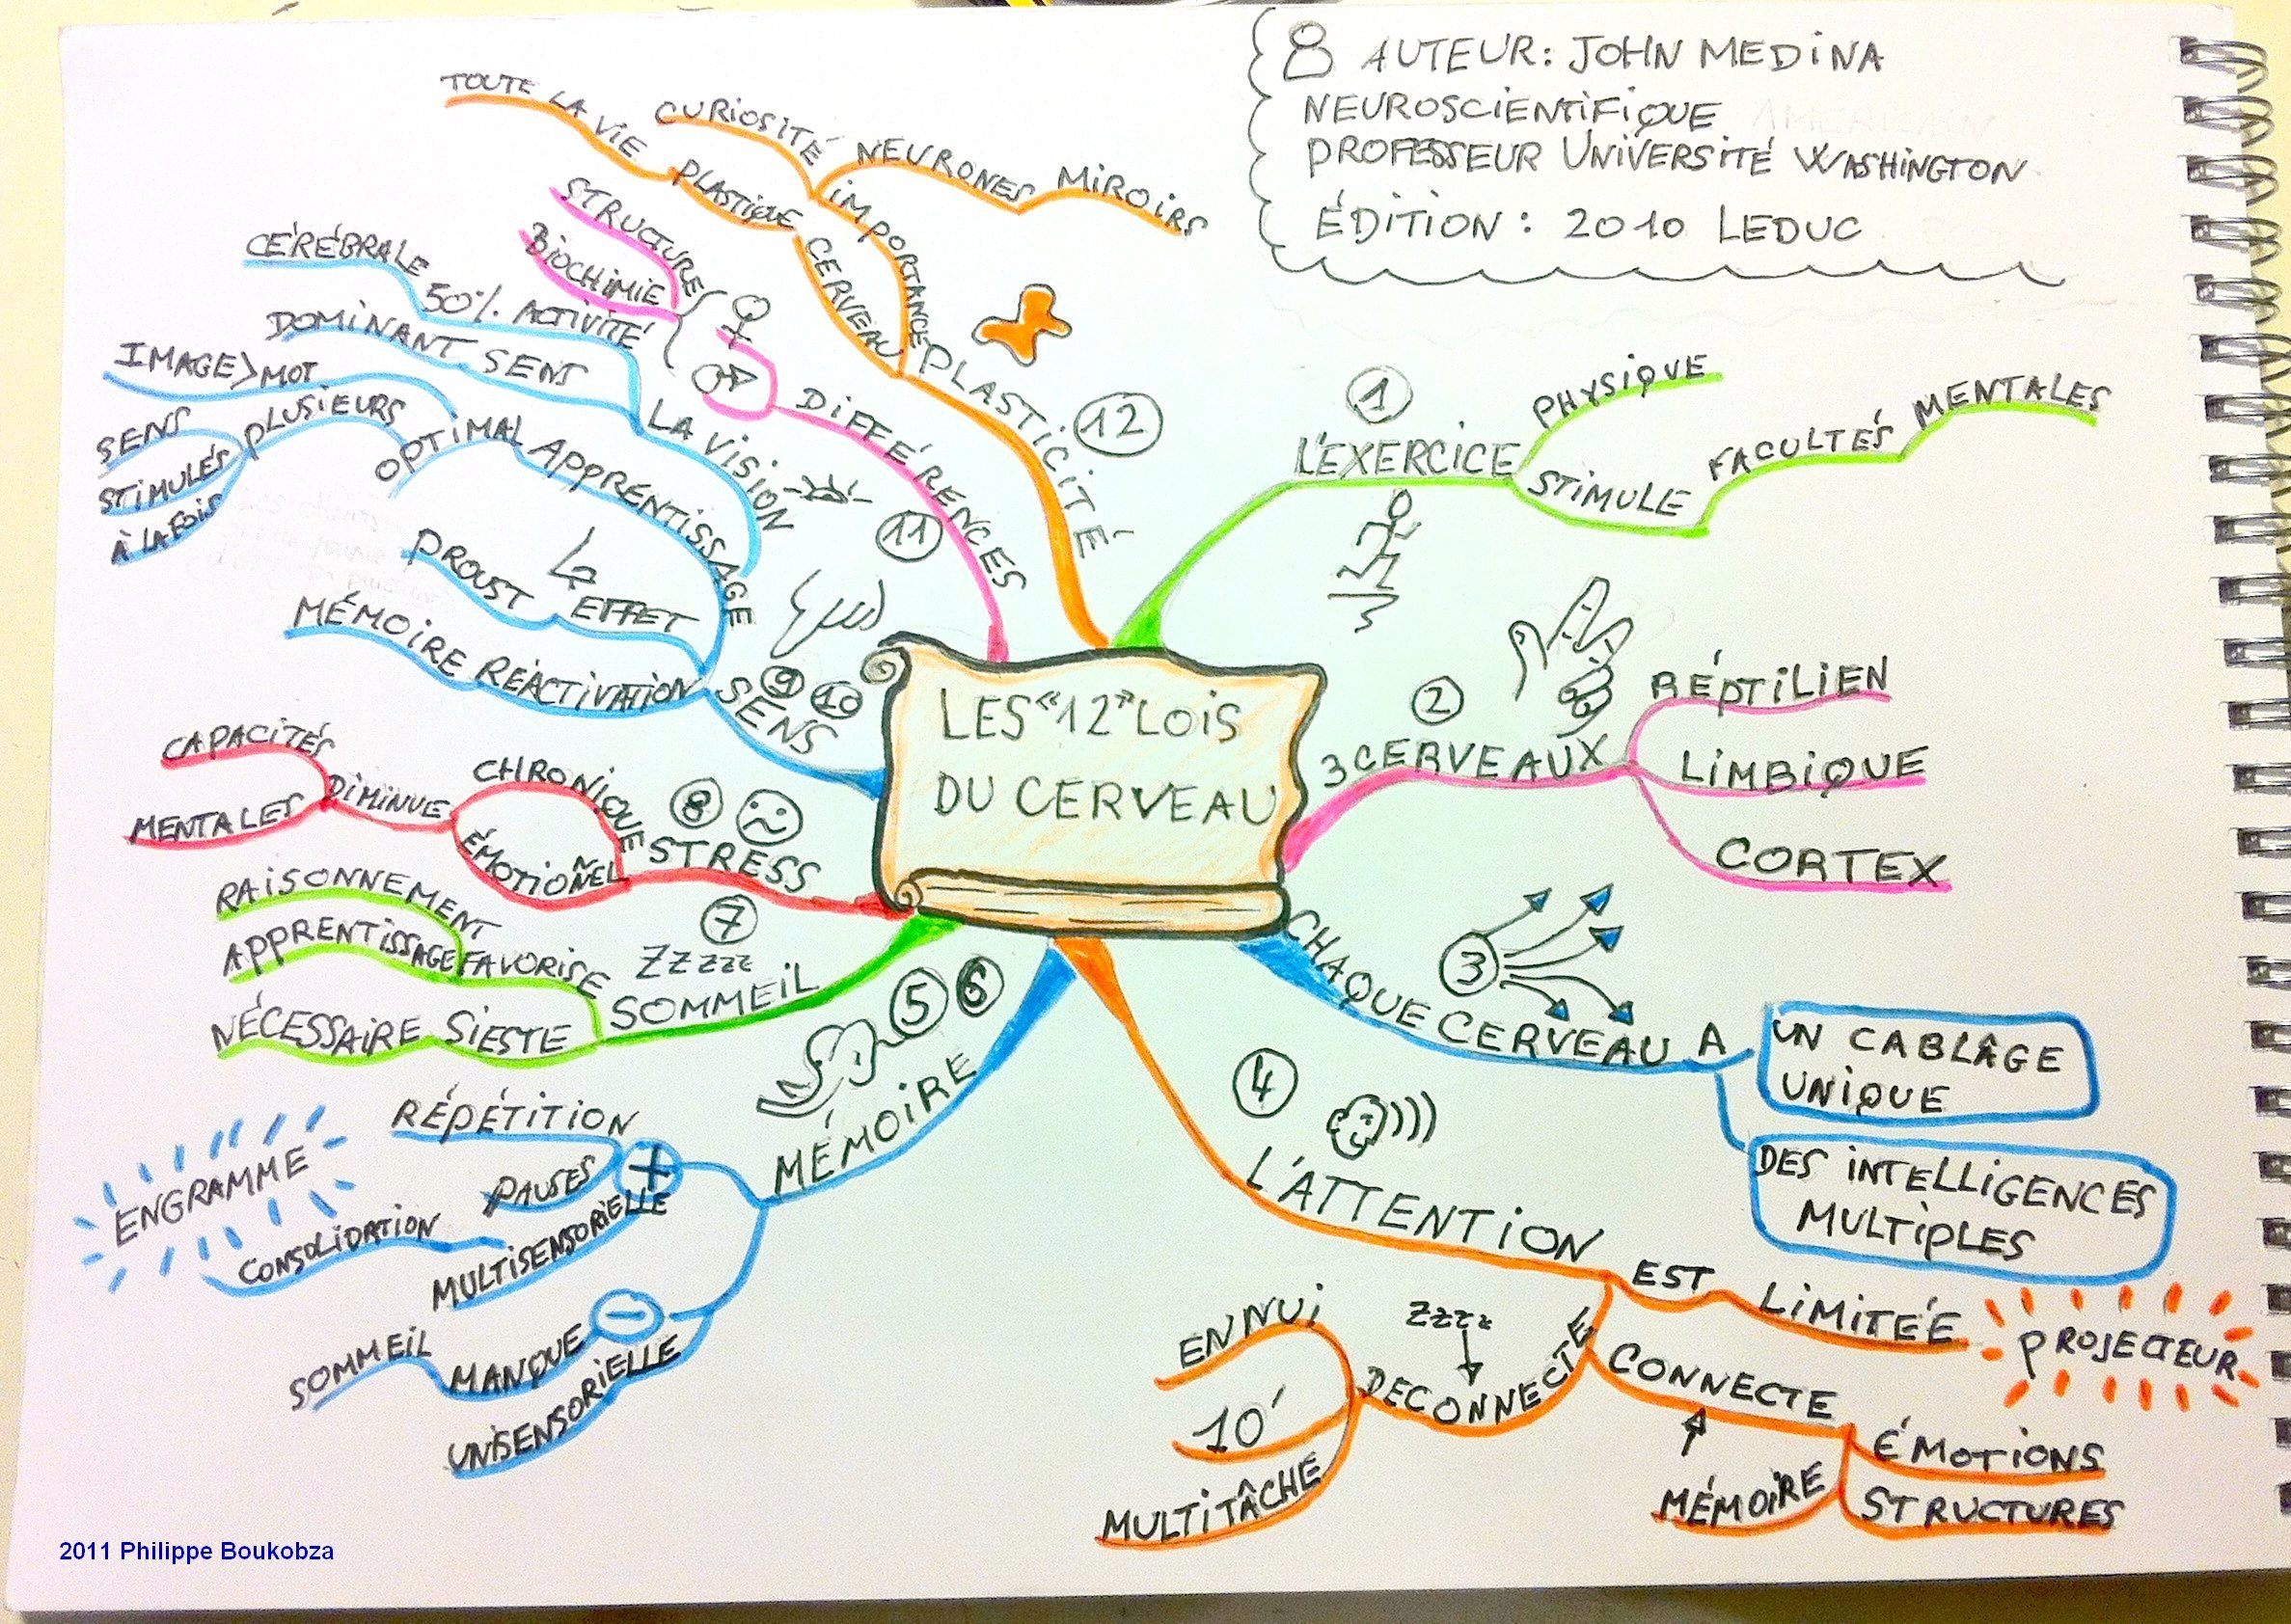 AUTEUR: JOHN MEDINA
NEUROSCIENTIFIQUE
PROFESSEUR UNIVERSITÉ WASHINGTON
ÉDITION : 2010 LEDUC
LES "12" LOIS
DU CERVEAU
1
L'EXERCICE
PHYSIQUE
STIMULE
FACULTÉS MENTALES
2
3 CERVEAUX
RÉPTILIEN
LIMBIQUE
CORTEX
3
CHAQUE CERVEAU A
UN CABLÂGE
UNIQUE
DES INTELLIGENCES
MULTIPLES
4
L'ATTENTION
EST LIMITÉE
PROJECTEUR
CONNECTE
ÉMOTIONS
STRUCTURES
MÉMOIRE
zzzz
DECONNECTE
ENNUI
10'
MULTITÂCHE
5 6
MÉMOIRE
+
RÉPÉTITION
PAUSES
MULTISENSORIELLE
CONSOLIDATION
ENGRAMME
-
MANQUE
SOMMEIL
UNISENSORIELLE
7
ZZzzz
SOMMEIL
FAVORISE
RAISONNEMENT
APPRENTISSAGE
SIESTE
NÉCESSAIRE
8
STRESS
CHRONIQUE
ÉMOTIONÑEL
DIMINUE
CAPACITÉS
MENTALES
9 10
SENS
MÉMOIRE RÉACTIVATION
EFFET
PROUST
APPRENTISSAGE
OPTIMAL
PLUSIEURS
SENS
STIMULÉS
À LA FOIS
IMAGE>MOT
LA VISION
DOMINANT SENS
50% ACTIVITÉ
CÉRÉBRALE
11
DIFFÉRENCES
♀
♂
STRUCTURE
BIOCHIMIE
12
PLASTICITÉ
CERVEAU
PLASTIQUE
TOUTE LA VIE
IMPORTANCE
CURIOSITÉ
NEURONES MIROIRS
2011 Philippe Boukobza